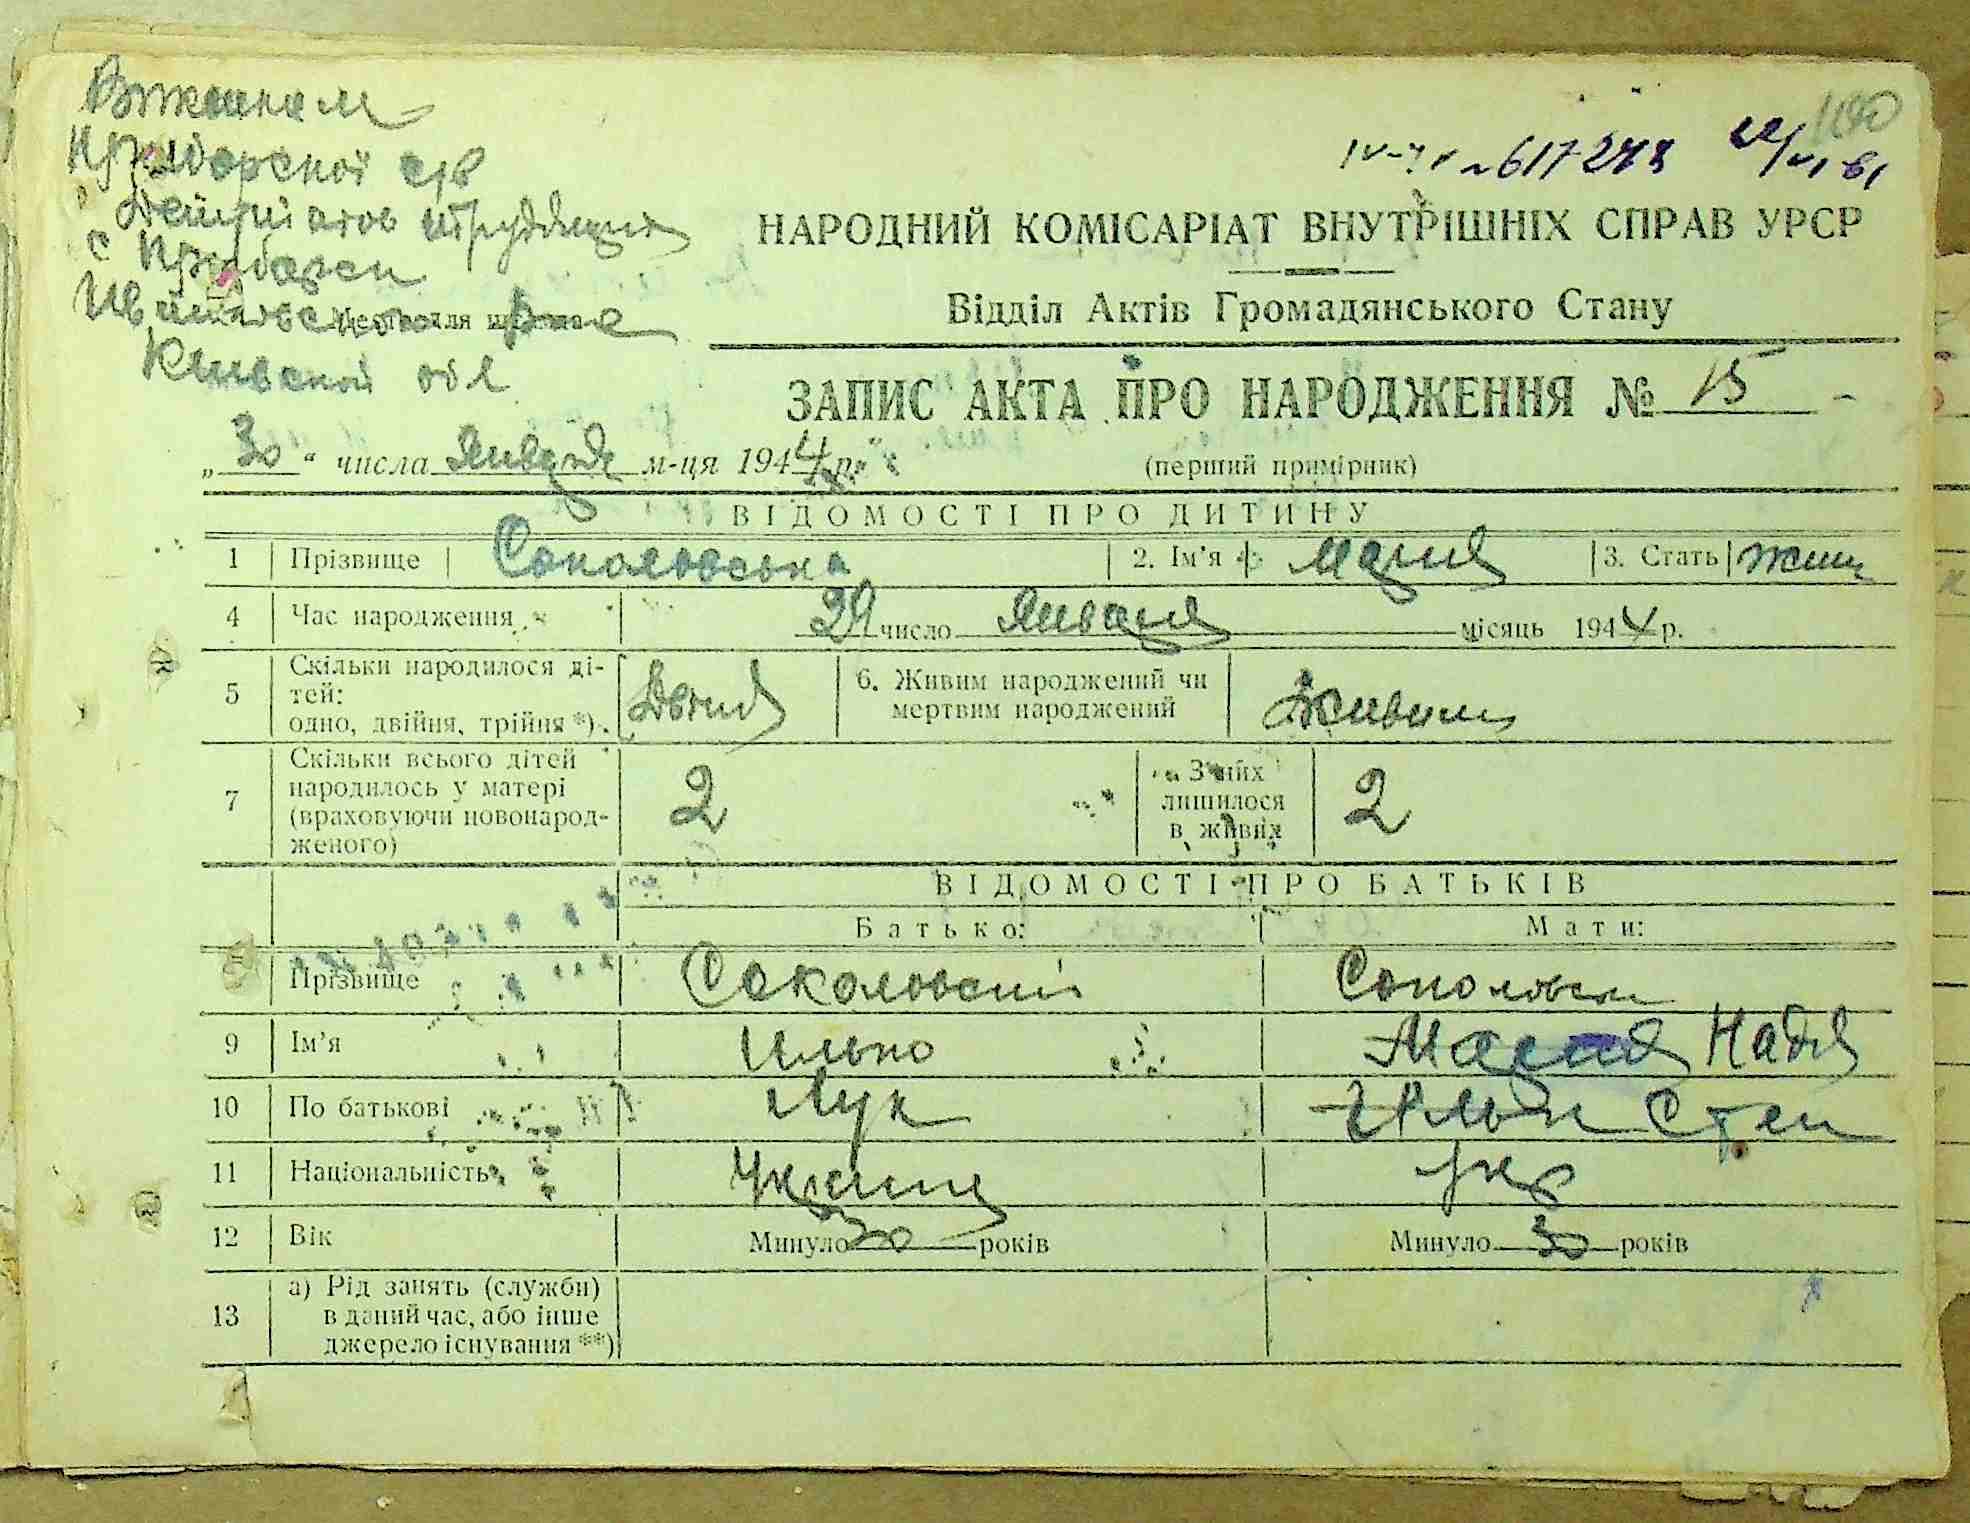 Виконком
сов
Депутатов трудящихся
с
Место для штампа
Киевской обл
100
IV- № 617273 22/VI 61
НАРОДНИЙ КОМІСАРІАТ ВНУТРІШНІХ СПРАВ УРСР
Відділ Актів Громадянського Стану
ЗАПИС АКТА ПРО НАРОДЖЕННЯ № 15
„30“ числа Января м-ця 1944 р.
(перший примірник)
ВІДОМОСТІ ПРО ДИТИНУ
1 Прізвище Соколовська 2. Ім'я Мария 3. Стать жен
4 Час народження 29 число Января місяць 1944 р.
5 Скільки народилося ді-
тей:
одно, двійня, трійня *). Двійня
6. Живим народжений чи
мертвим народжений Живим
7 Скільки всього дітей
народилось у матері
(враховуючи новонарод-
женого) 2
З них
лишилося
в живих 2
ВІДОМОСТІ ПРО БАТЬКІВ
Батько: Мати:
Прізвище Соколовский Соколовска
9 Ім'я Илько Мария Надія
10 По батькові Лук Ильи Степ
11 Національність Украинец укр
12 Вік Минуло 30 років Минуло 30 років
13 а) Рід занять (служби)
в даний час, або інше
джерело існування **)